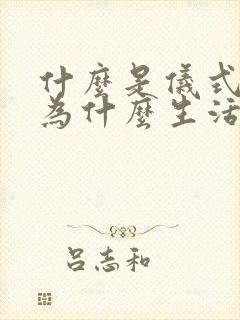 什麼是儀式
為什麼生活
呂志和